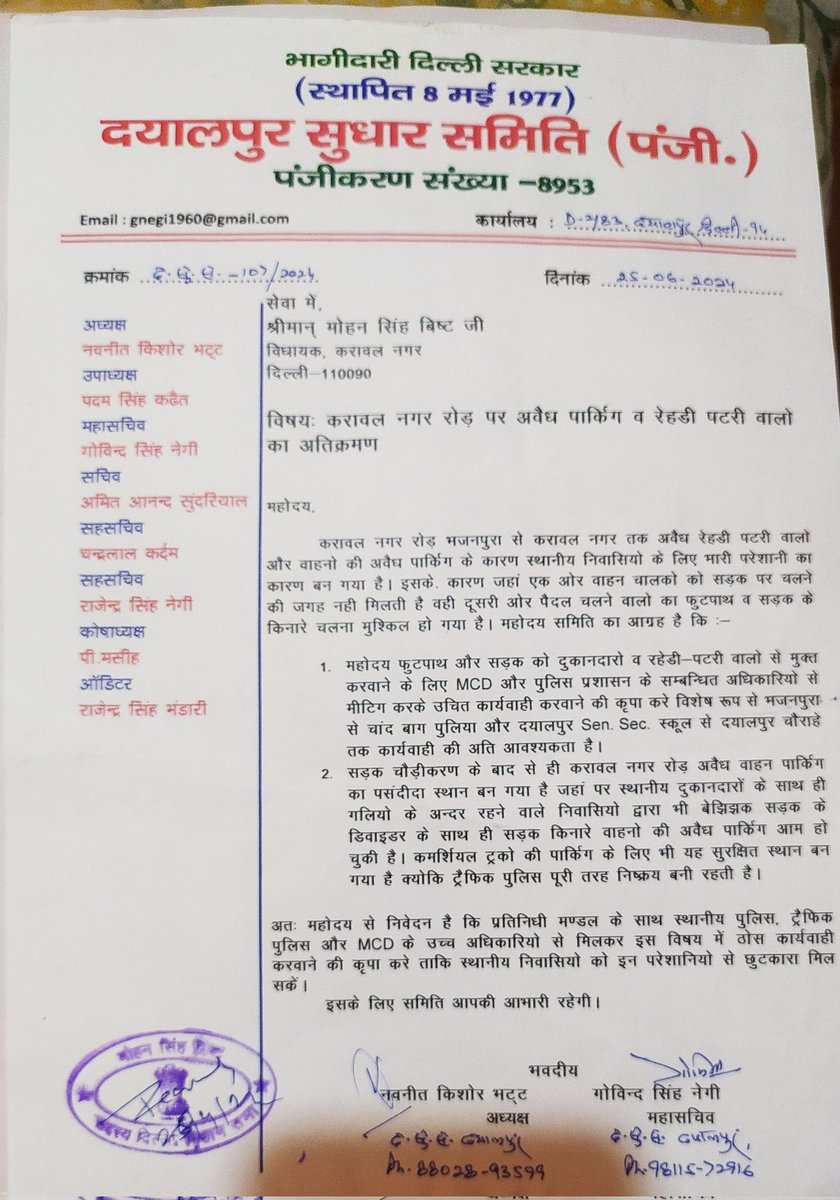 भागीदारी दिल्ली सरकार
(स्थापित 8 मई 1977)
दयालपुर सुधार समिति (पंजी.)
पंजीकरण संख्या –8953
Email : gnegi1960@gmail.com
कार्यालय : D-2/83, दयालपुर, दिल्ली-94
क्रमांक द. सु. स. -107/2024
दिनांक 25-06-2024
अध्यक्ष
नवनीत किशोर भट्ट
उपाध्यक्ष
पदम सिंह कढैत
महासचिव
गोविन्द सिंह नेगी
सचिव
अमित आनन्द सुंदरियाल
सहसचिव
चन्द्रलाल कर्दम
सहसचिव
राजेन्द्र सिंह नेगी
कोषाध्यक्ष
पी.मसीह
ऑडिटर
राजेन्द्र सिंह भंडारी
सेवा में,
श्रीमान् मोहन सिंह बिष्ट जी
विधायक, करावल नगर
दिल्ली–110090
विषयः करावल नगर रोड़ पर अवैध पार्किग व रेहडी पटरी वालो
का अतिक्रमण
महोदय,
करावल नगर रोड़ भजनपुरा से करावल नगर तक अवैध रेहडी पटरी वालो
और वाहनो की अवैध पार्किग के कारण स्थानीय निवासियो के लिए भारी परेशानी का
कारण बन गया है। इसके. कारण जहां एक ओर वाहन चालको को सड़क पर चलने
की जगह नही मिलती है वही दूसरी ओर पैदल चलने वालो का फुटपाथ व सड़क के
किनारे चलना मुश्किल हो गया है। महोदय समिति का आग्रह है कि :–
1. महोदय फुटपाथ और सड़क को दुकानदारो व रहेडी–पटरी वालो से मुक्त
करवाने के लिए MCD और पुलिस प्रशासन के सम्बन्धित अधिकारियो से
मीटिग करके उचित कार्यवाही करवाने की कृपा करे विशेष रूप से भजनपुरा
से चांद बाग पुलिया और दयालपुर Sen. Sec. स्कूल से दयालपुर चौराहे
तक कार्यवाही की अति आवश्यकता है।
2. सड़क चौड़ीकरण के बाद से ही करावल नगर रोड़ अवैध वाहन पार्किग
का पसंदीदा स्थान बन गया है जहां पर स्थानीय दुकानदारों के साथ ही
गलियो के अन्दर रहने वाले निवासियो द्वारा भी बेझिझक सड़क के
डिवाइडर के साथ ही सड़क किनारे वाहनो की अवैध पार्किग आम हो
चुकी है। कमर्शियल ट्रको की पार्किग के लिए भी यह सुरक्षित स्थान बन
गया है क्योकि ट्रैफिक पुलिस पूरी तरह निष्क्रय बनी रहती है।
अतः महोदय से निवेदन है कि प्रतिनिधी मण्डल के साथ स्थानीय पुलिस, ट्रैफिक
पुलिस और MCD के उच्च अधिकारियो से मिलकर इस विषय में ठोस कार्यवाही
करवाने की कृपा करे ताकि स्थानीय निवासियो को इन परेशानियो से छुटकारा मिल
सकें।
इसके लिए समिति आपकी आभारी रहेगी।
भवदीय
नवनीत किशोर भट्ट
अध्यक्ष
द. सु. स. दयालपुर
Ph. 88028-93599
गोविन्द सिंह नेगी
महासचिव
द. सु. स. दयालपुर,
Ph. 98115-72916
मोहन सिंह
सदस्य सभा